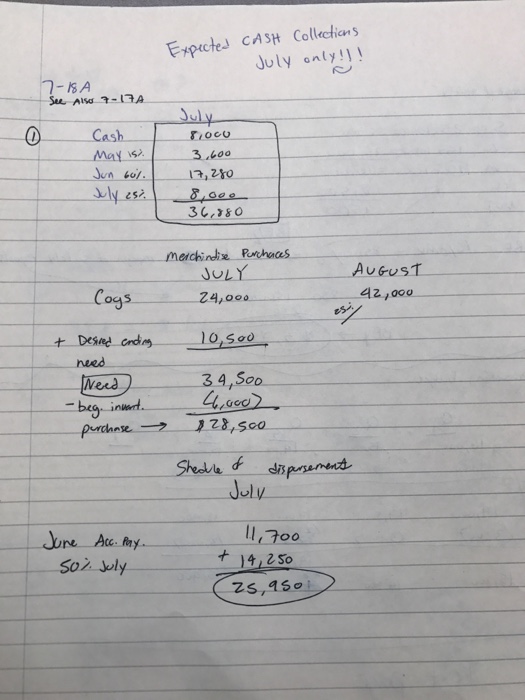 Expected CASH Collections
July only!!!
7-18A
See Also 7-17A
July
① Cash 8,000
May 15% 3,600
Jun 60% 17,280
July 25% 8,000
36,880
Merchindise Purchaces
JULY AUGUST
Cogs 24,000 42,000
25%
+ Desired ending 10,500
need
Need 34,500
- beg. invent. (6,000)
purchase → $28,500
Shedule of dispursements
July
June Acc. Pay. 11,700
50% July + 14,250
25,950